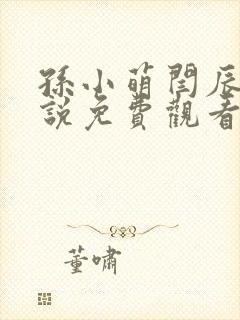 孫小萌閆辰
說免費觀看
董嘯